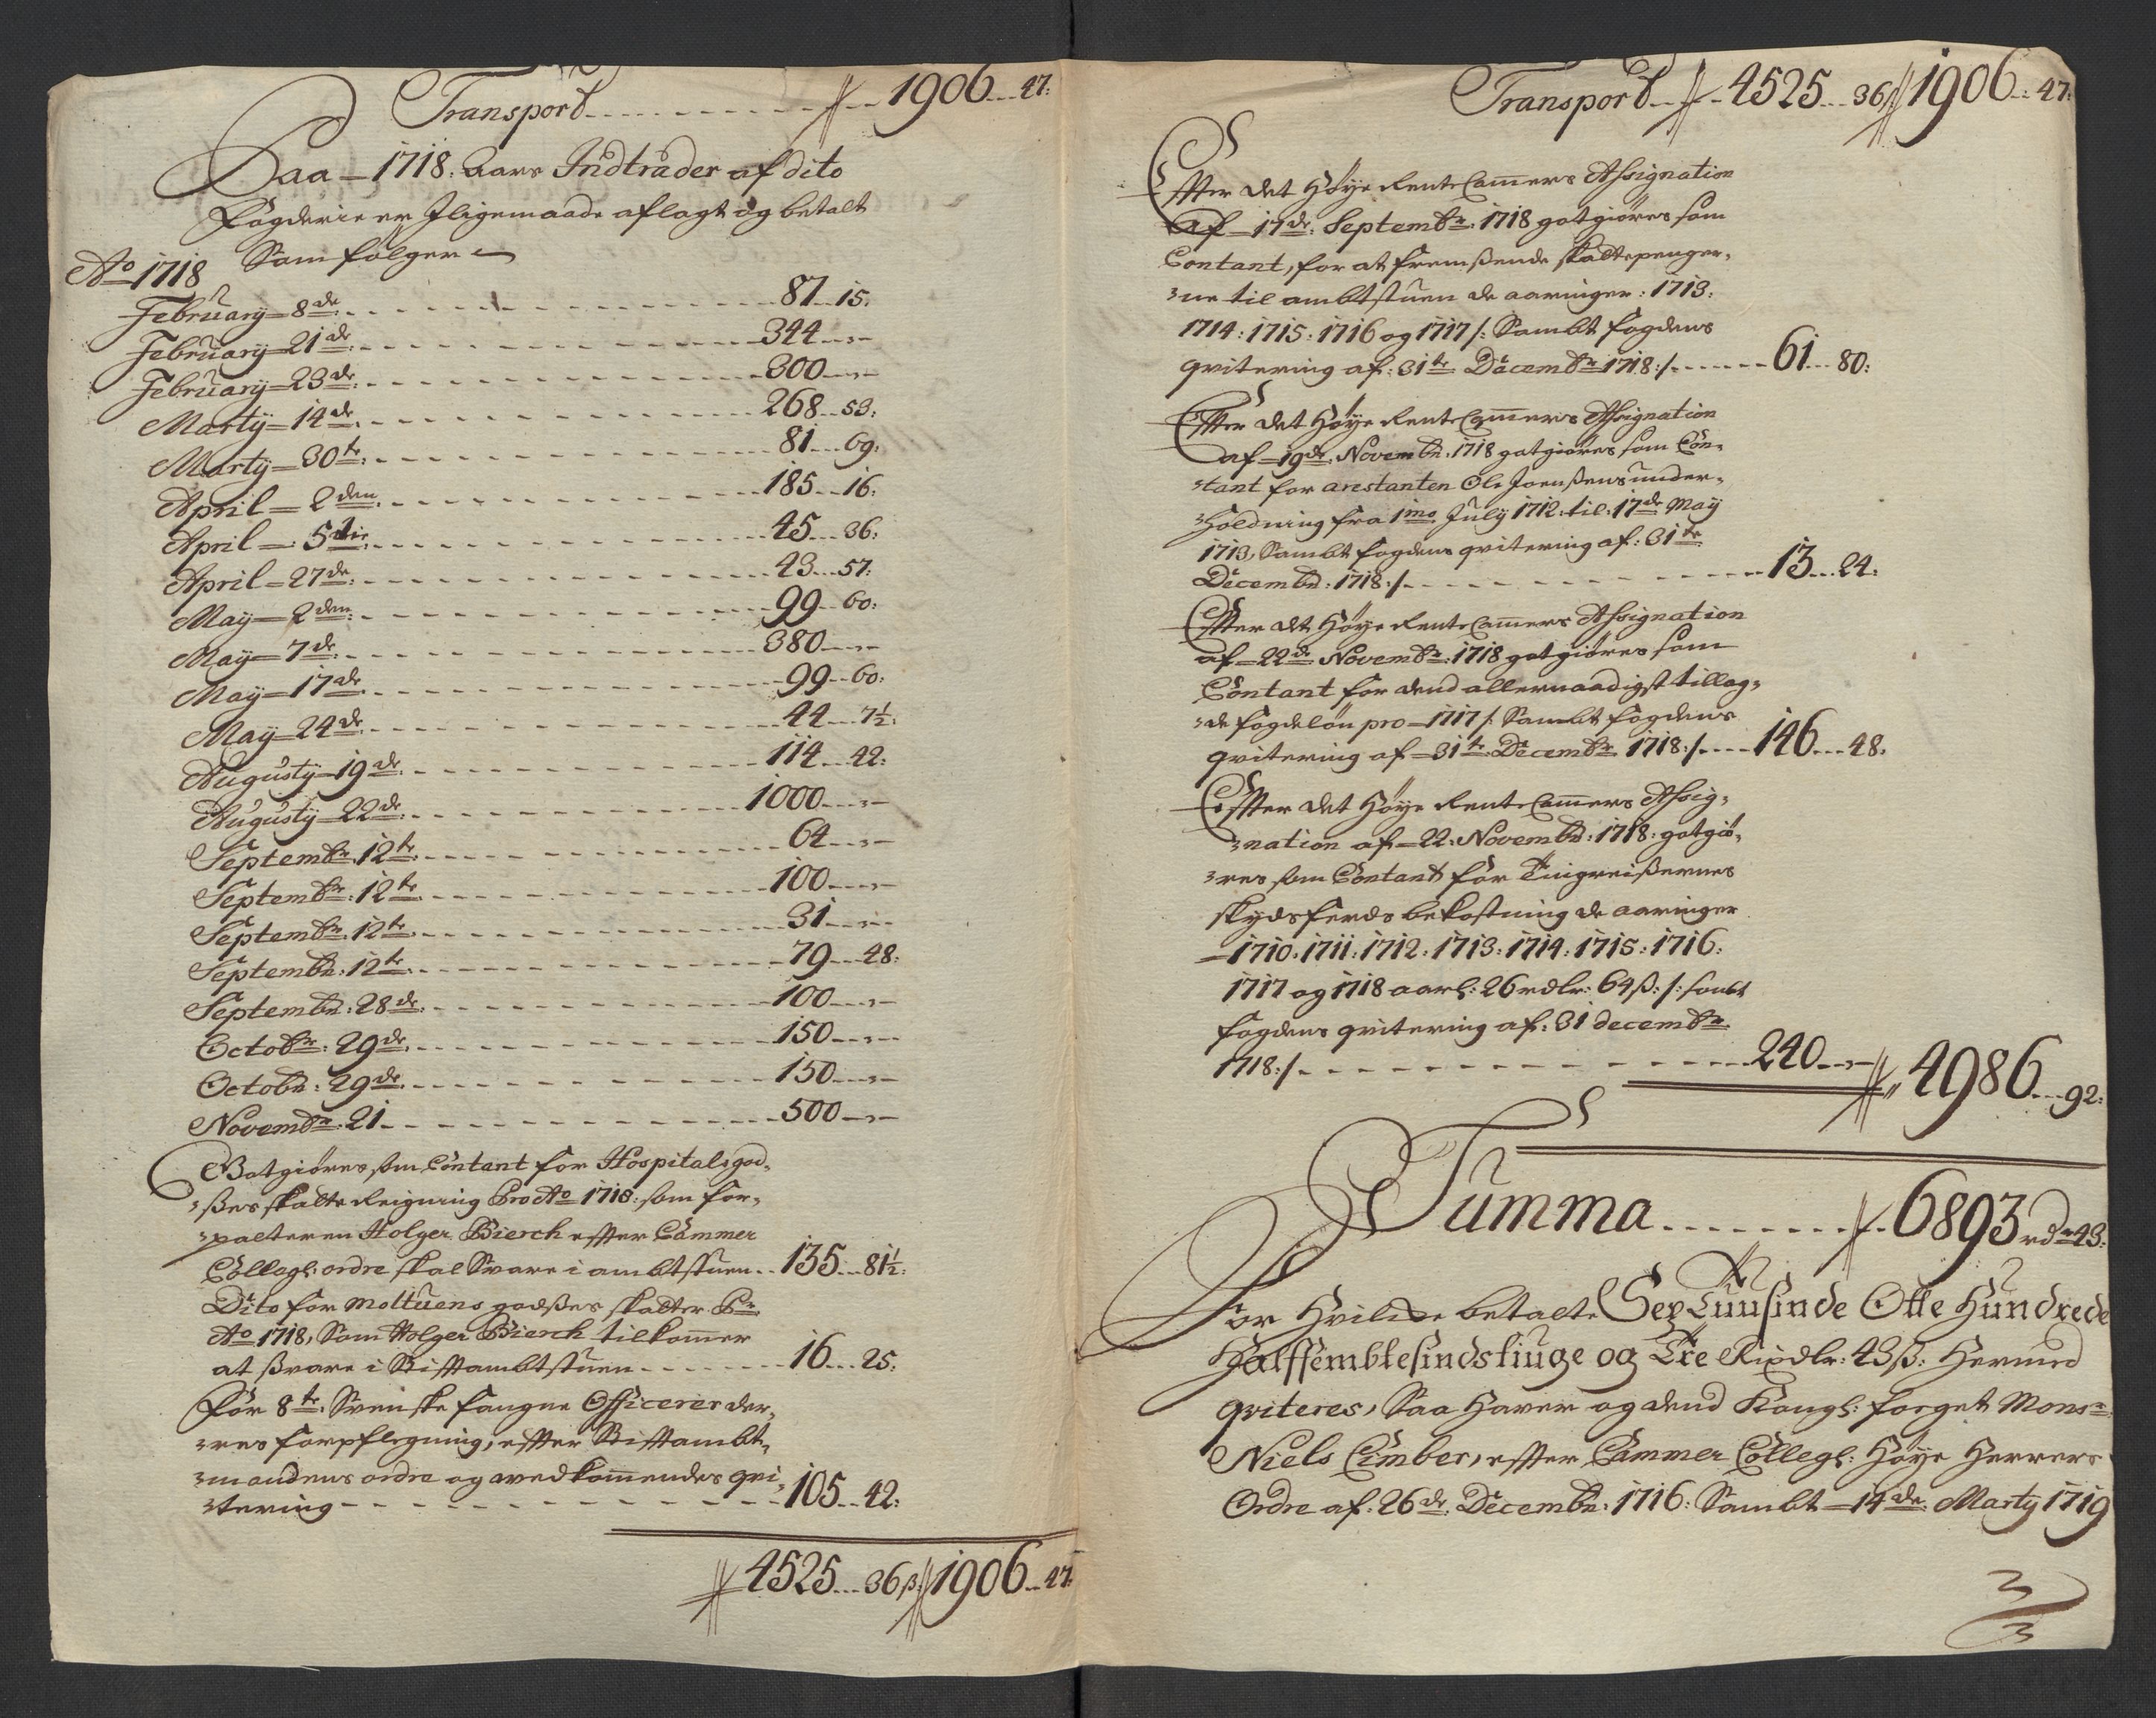 Transport ⸺ 1906 47:
Paa 1718: Aars Indtrader af dito
Fogderie er Jligemaade aflagt og betalt
Som følger
Ao 1718
February 8de 87 15:
February 21de 344 „
February 23de 300 „
Marty 14de 268 53:
Marty 30te 81 69:
April 2den 185 16:
April 5te 45 36:
April 27de 43 57:
May 2den 99 60:
May 7de 380 „
May 17de 99 60:
May 24de 44 7½:
Augusty 19de 114 42:
Augusty 22de 1000 „
Septembr: 12te 64 „
Septembr: 12te 100 „
Septembr: 12te 31 „
Septembr: 12te 79 48:
Septembr: 28de 100 „
Octobr: 29de 150 „
Octobr: 29de 150 „
Novembr: 21 500 „
Gotgiøres som Contant for Hospitalsgod-
sses skatte Reigning Pro Ao 1718: som for-
palteren Holger Bierch efter Cammer
Collegl: ordre skal Svare i ambtstuen 135 81½:
Dito for Moltuens godsses skatter Pr
Ao 1718, Som Holger Bierch tilkommer
at ssvare i Stiftambtstuen 16 25:
For 8te Svenske fangne Officerer der-
res forpflegning, efter Stiftambt-
mandens ordre og wedkommendes qvi-
tering 105 42:
4525 36ß 1906 47:
Transport 4525 36ß 1906 47:
Efter det Høye Rente Cammers Assignation
af 17de Septembr: 1718 gotgiøres som
Contant, for at fremssende skattepenger-
ne til ambtstuen de aaringer: 1713:
1714: 1715: 1716 og 1717 /: Sambt fogdens
qvitering af: 31te Decembr 1718:/ 61 80:
Efter det Høye Rente Cammers Assignation
af 19de Novembr: 1718 gotgiøres som Con-
tant for arestanten Ole Joenssens under-
holdning fra 1mo July 1712: til: 17de May
1713, Sambt fogdens qvitering af: 31te
Decembr: 1718:/ 13 24:
Efter det Høye Rente Cammers Assignation
af 22de Novembr: 1718 gotgiøres som
Contant for dend allernaadigst tillag-
de fogdeløn pro 1717 /: Sambt fogdens
qvitering af 31te Decembr 1718:/ 146 48:
Efter det Høye Rente Cammers Assig-
nation af 22: Novembr: 1718: gotgiø-
res som Contant for Tingreissernes
skydsferds bekostning de aaringer
1710: 1711: 1712: 1713: 1714: 1715: 1716:
1717 og 1718 aarl: 26 rdlr: 64ß: /: sambt
fogdens qvitering af: 31 decembr
1718:/ 240 „ 4986 92:
Summa 6893 rdr 43:
For Hvilcke betalte Sex Tuusinde Otte Hundrede
Halffsemblesindstiuge og Tre Rixdlr: 43ß: Hermed
qviteres, Saa Haver og dend Kongl: foeget Monsr
Niels Cimber, efter Cammer Collegl: Høye Herrers
Ordre af: 26de Decembr: 1716: Sambt 14de Marty 1719